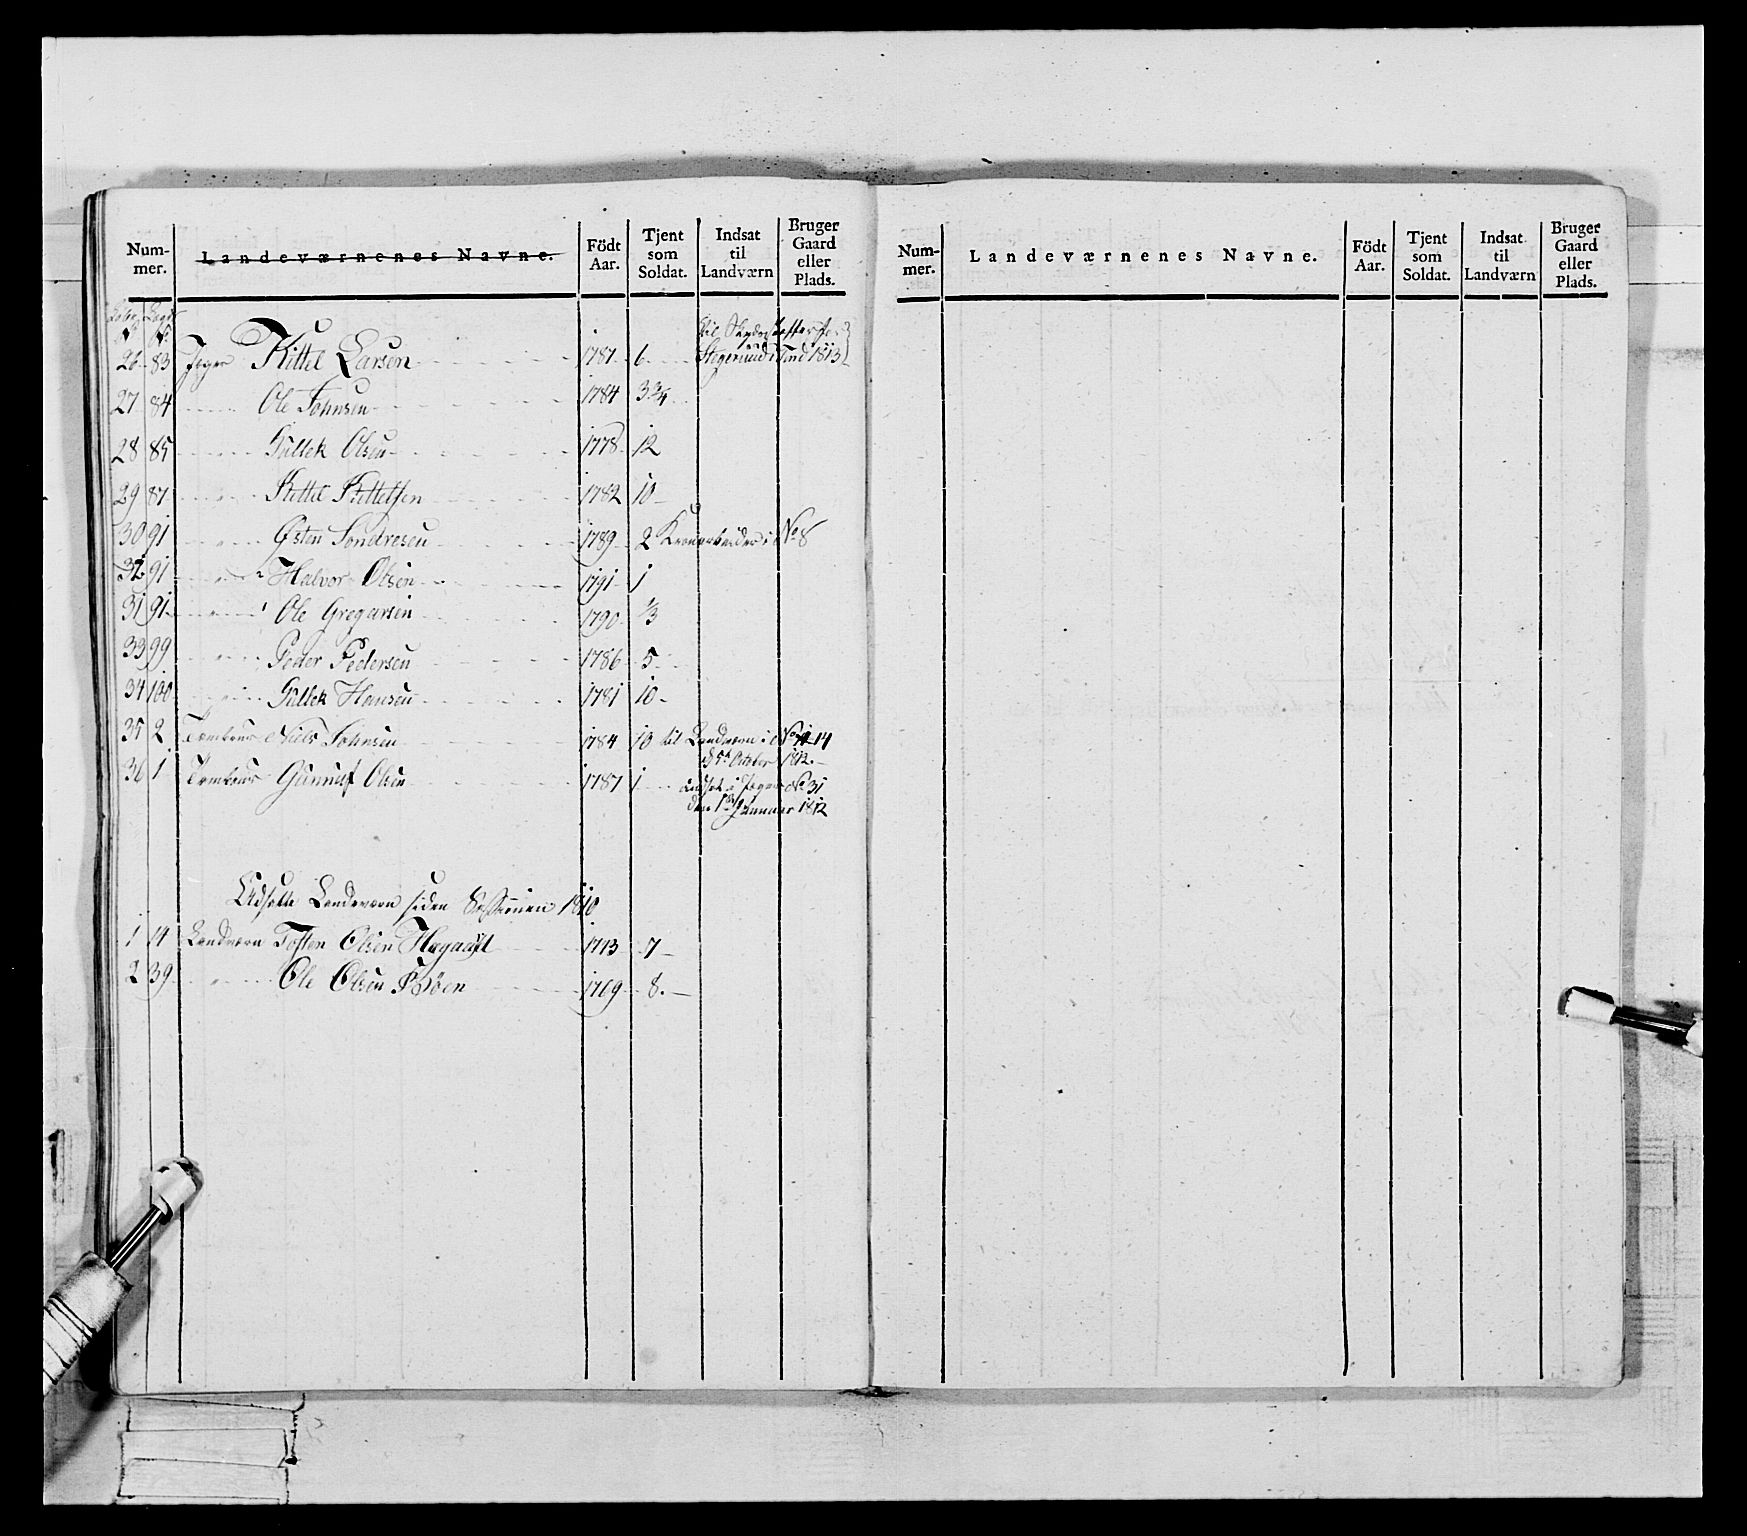 Num-
mer.
Landeværnenes Navne.
Födt
Aar.
Tjent
som
Soldat.
Indsat
til
Landværn
Bruger
Gaard
eller
Plads.
No No
26 83 Jæger Kittel Larsen 1787 6
27 84 Ole Johnsen 1784 3 3/4
28 85 Gullek Olsen 1778 12
29 87 Kittel Kittelsen 1782 10
30 91 Østen Sondresen 1789 2 i No 8
32 91 Halvor Olsen 1791 1
31 91 Ole Gregarsen 1790 1/3
33 99 Peder Pedersen 1786 5
34 100 Gullek Hansen 1781 10
35 2 Niels Johnsen 1784 10 til Landværn i No 14
d 5t October 1812.
36 1 Gunnuf Olsen 1787 1 Indsat i Jæger No 31
den 1te Januar 1812
Udsatte Landeværn siden Sessionen 1810
1 14 Landværn Tosten Olsen 1773 7
2 39 Ole Olsen Bøen 1769 8
Num-
mer.
Landeværnenes Navne.
Födt
Aar.
Tjent
som
Soldat.
Indsat
til
Landværn
Bruger
Gaard
eller
Plads.